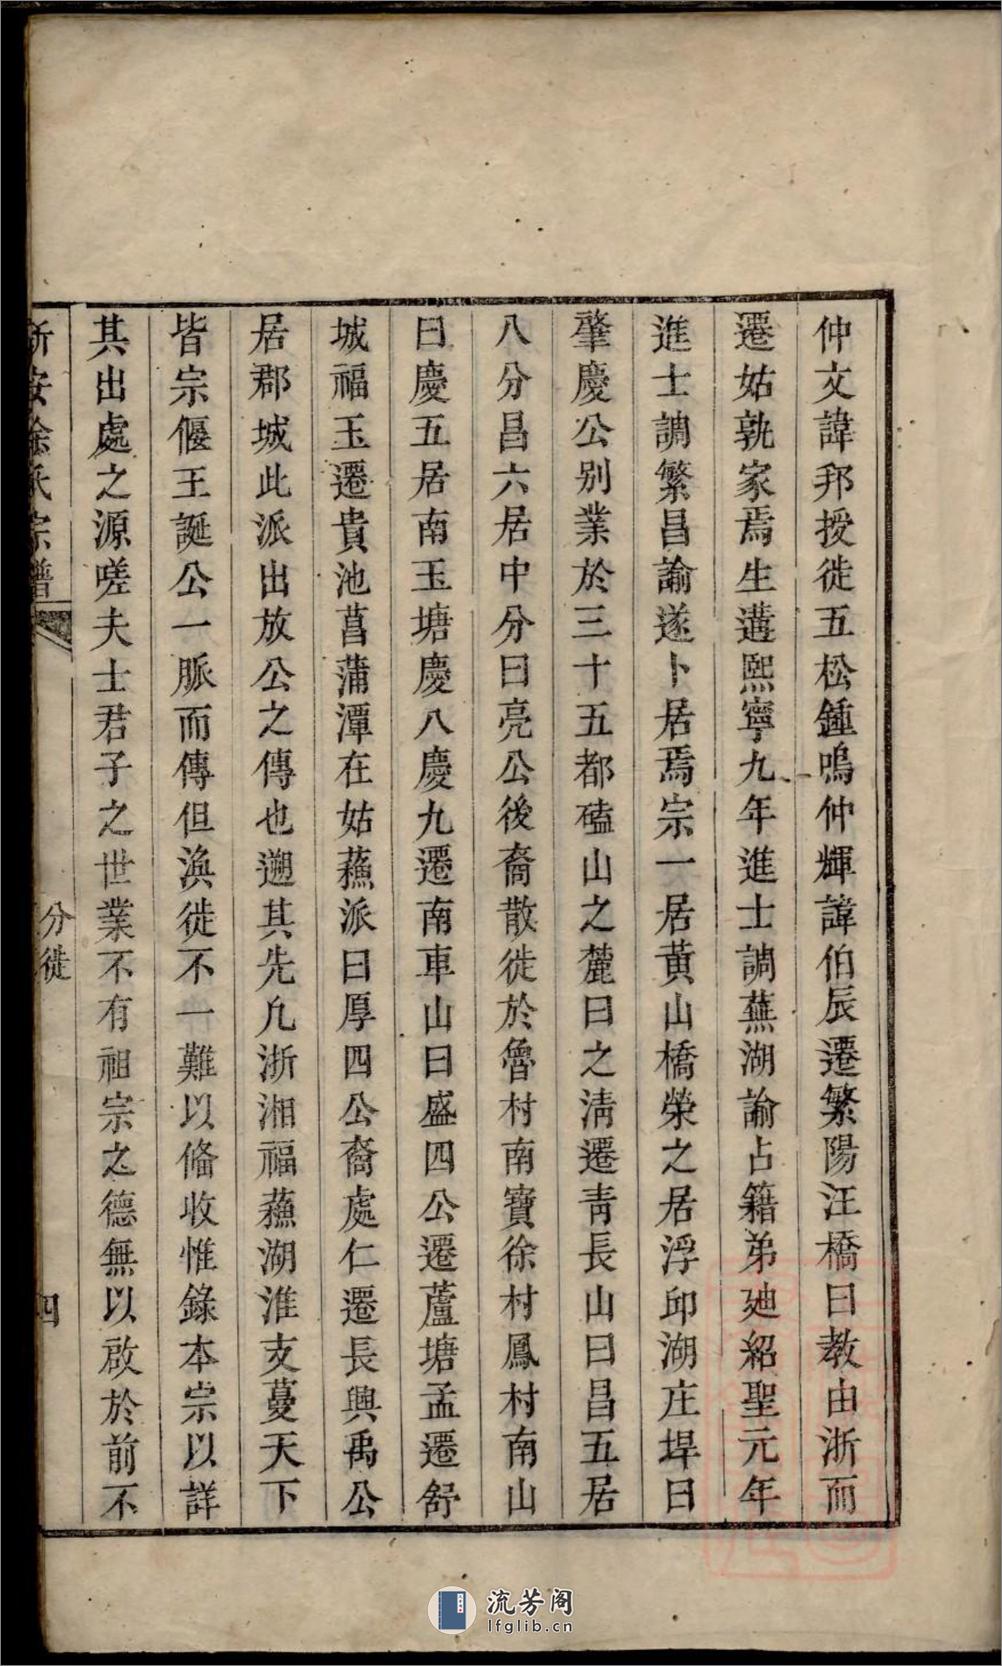 仲文諱邦授徙五松鍾鳴仲輝諱伯辰遷繁陽汪橋曰教由浙而
遷姑孰家焉生遘熙寧九年進士調蕪湖諭占籍弟廸紹聖元年
進士調繁昌諭遂卜居焉宗一居黃山橋榮之居浮邱湖庄埠曰
肇慶公别業於三十五都磕山之麓曰之清遷青長山曰昌五居
八分昌六居中分曰亮公後裔散徙於魯村南寶徐村鳳村南山
曰慶五居南玉塘慶八慶九遷南車山曰盛四公遷蘆塘孟遷舒
城福玉遷貴池菖蒲潭在姑蘓派曰厚四公裔處仁遷長興禹公
居郡城此派出放公之傳也遡其先凢浙湘福蘓湖淮支蔓天下
皆宗偃王誕公一脈而傳但渙徙不一難以偹收惟錄本宗以詳
其出處之源嗟夫士君子之世業不有祖宗之德無以啟於前不
新安徐氏宗譜
分徙
四
流芳阁
lfglib.cn